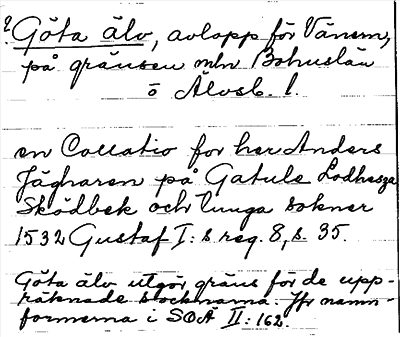 ? Göta älv, avlopp för Vänern,
på gränsen mln Bohuslän
o Älvsb. l.
en Collatio for her Anders
Jägharen på Gatule Lodhesza
Sködbek och lunga sokner
1532 Gustaf I:s reg. 8, s. 35.
Göta älv utgör gräns för de upp-
räknade socknarna. Jfr namn-
formerna i SOÄ II: 162.